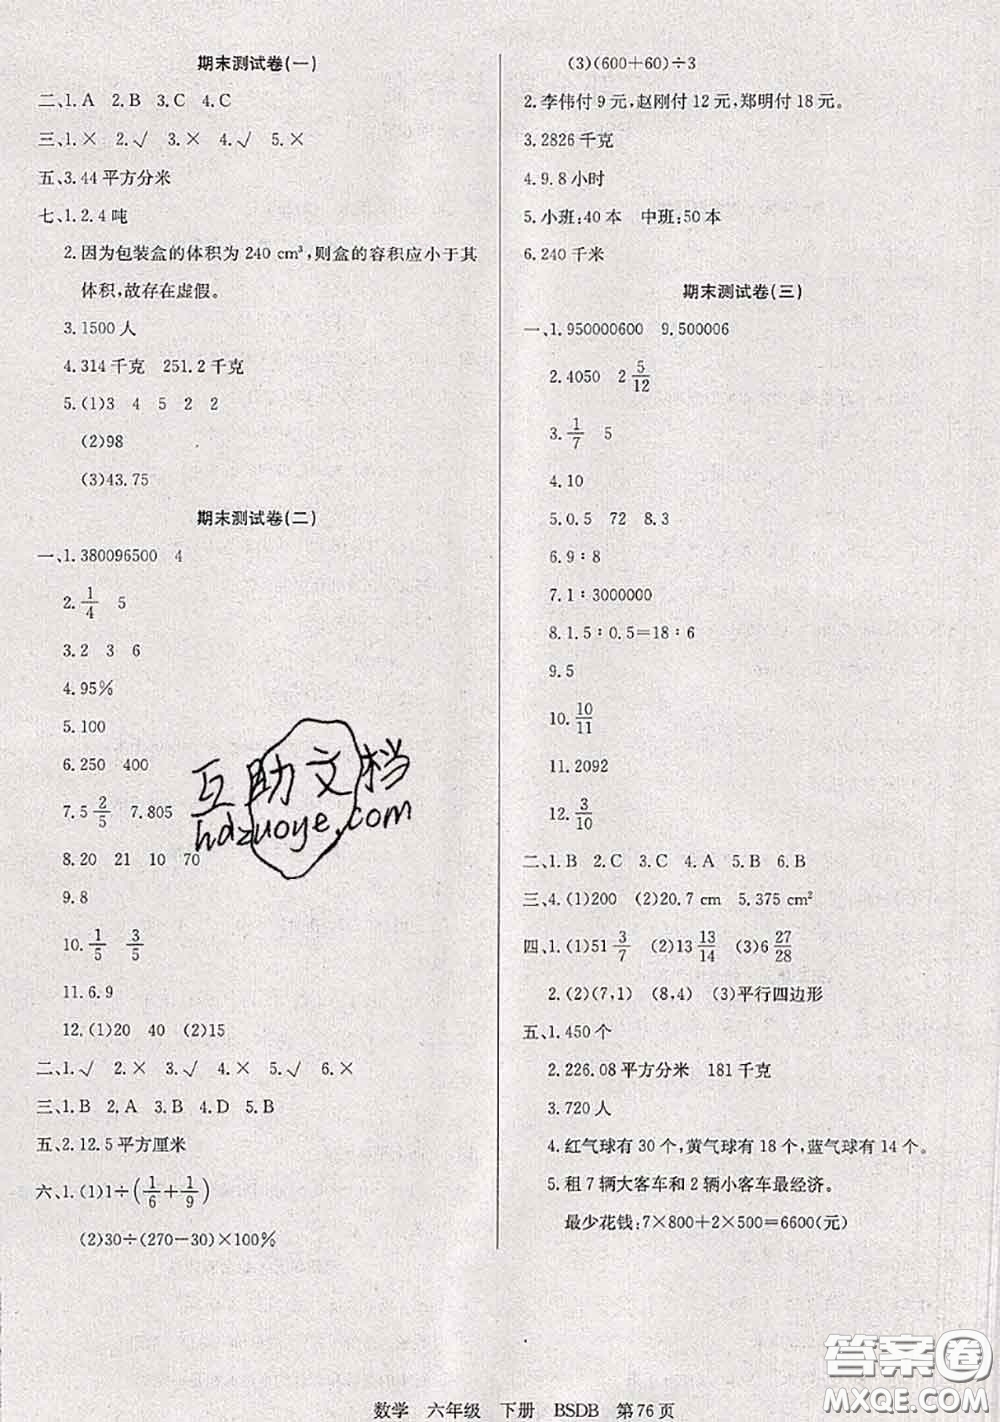 期末测试卷(一)
二、1.A 2.B 3.C 4.C
三、1.× 2.√ 3.× 4.√ 5.×
五、3.44平方分米
七、1.2.4吨
2.因为包装盒的体积为240 cm³,则盒的容积应小于其
体积,故存在虚假。
3.1500人
4.314千克 251.2千克
5.(1)3 4 5 2 2
(2)98
(3)43.75
期末测试卷(二)
一、1.380096500 4
2.1/4 5
3.2 3 6
4.95%
5.100
6.250 400
7.5 2/5 7.805
8.20 21 10 70
9.8
10.1/5 3/5
11.6.9
12.(1)20 40 (2)15
二、1.√ 2.× 3.√ 4.× 5.√ 6.×
三、1.B 2.A 3.B 4.D 5.B
五、2.12.5平方厘米
六、1.(1)1÷(1/6+1/9)
(2)30÷(270-30)×100%
(3)(600+60)÷3
2.李伟付9元,赵刚付12元,郑明付18元。
3.2826千克
4.9.8小时
5.小班:40本 中班:50本
6.240千米
期末测试卷(三)
一、1.950000600 9.500006
2.4050 2 5/12
3.1/7 5
4.10
5.0.5 72 8.3
6.9∶8
7.1∶3000000
8.1.5∶0.5=18∶6
9.5
10.10/11
11.2092
12.3/10
二、1.B 2.C 3.C 4.A 5.B 6.B
三、4.(1)200 (2)20.7 cm 5.375 cm²
四、1.(1)51 3/7 (2)13 13/14 (3)6 27/28
2.(2)(7,1) (8,4) (3)平行四边形
五、1.450个
2.226.08平方分米 181千克
3.720人
4.红气球有30个,黄气球有18个,蓝气球有14个。
5.租7辆大客车和2辆小客车最经济。
最少花钱:7×800+2×500=6600(元)
互助文档
hdzuoye.com
答案圈
MXQE.COM
数学 六年级 下册 BSDB 第76页